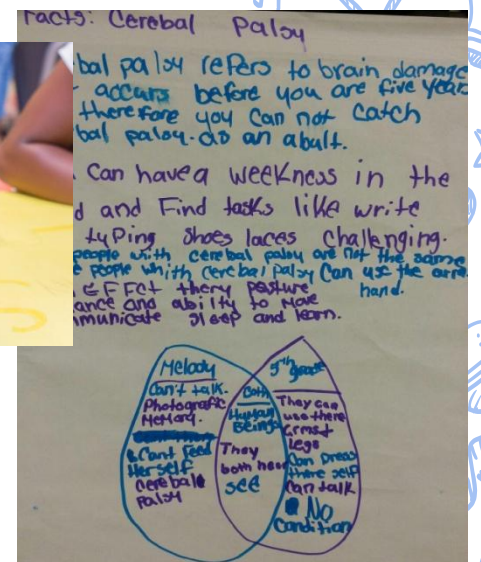 Facts: Cerebal Palsy
bal palsy refers to brain damage
accurs before you are five year
therefore you can not catch
bal palsy. as an abult.
Can have a weekness in the
d and Find tasks like write
tyPing shoes laces challenging.
people with cerebal palsy are not the same
e people whith cerebal palsy can use the arm
hand.
EFFct thery posture
ance and abilty to move
mmunicate sleep and learn.
Melody
Can't talk.
Photografic
Memory.
Cant Feed
Her self
cerebale
Palsy
Both
Human
Beings
They
both hear
see
5th grade
They can
use there
arms+
legs
Can Dress
there self
Can talk
No
Condition